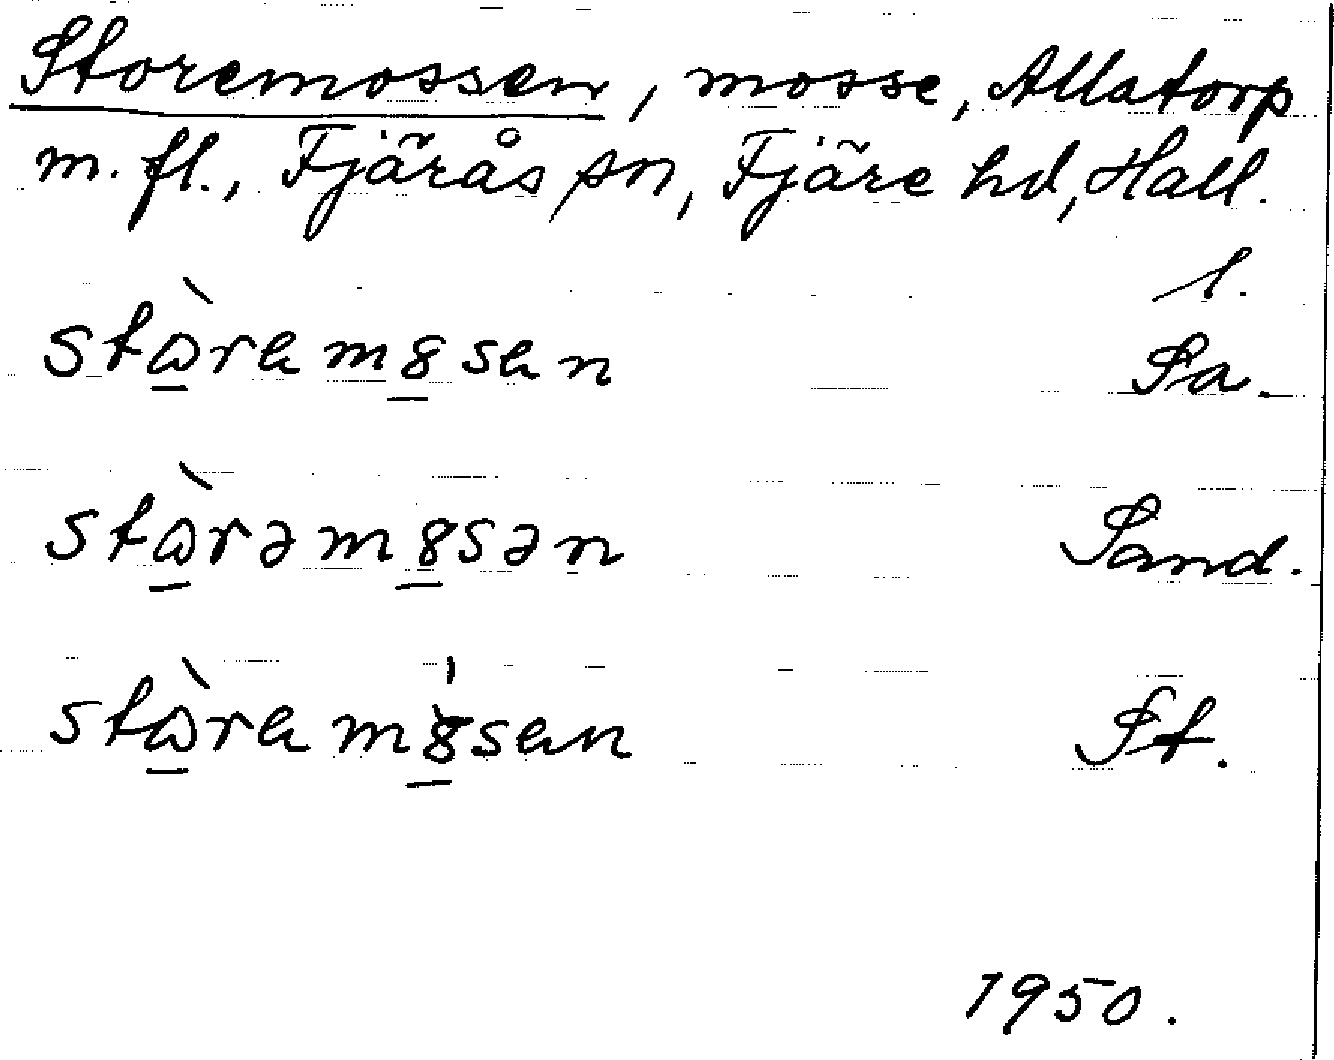 Storemossen, mosse, Allatorp
m. fl., Fjärås sn, Fjäre hd, Hall.
l.
stɷ̀ramȣsan Sa.
stɷ̀rəmȣsən Sand.
stɷ̀ramȣ̍san St.
1950.